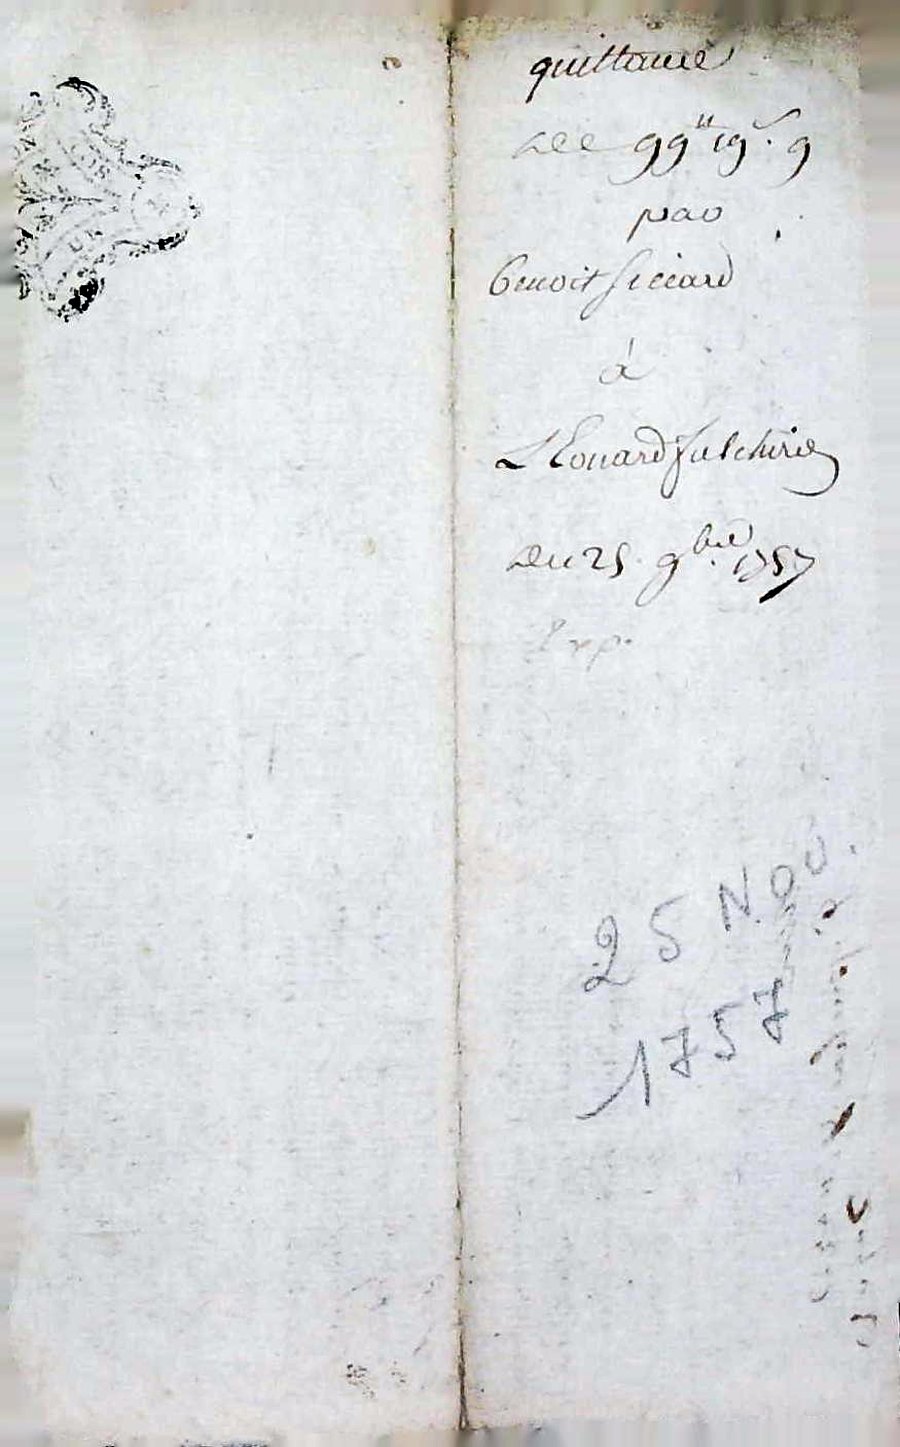 quittance
de 99ᵗᵗ 19ˢ 9
par
Benoit Siccard
à
Léonard Fulchire
du 25 9bre 1757
Exp.
25 Nov.
1757